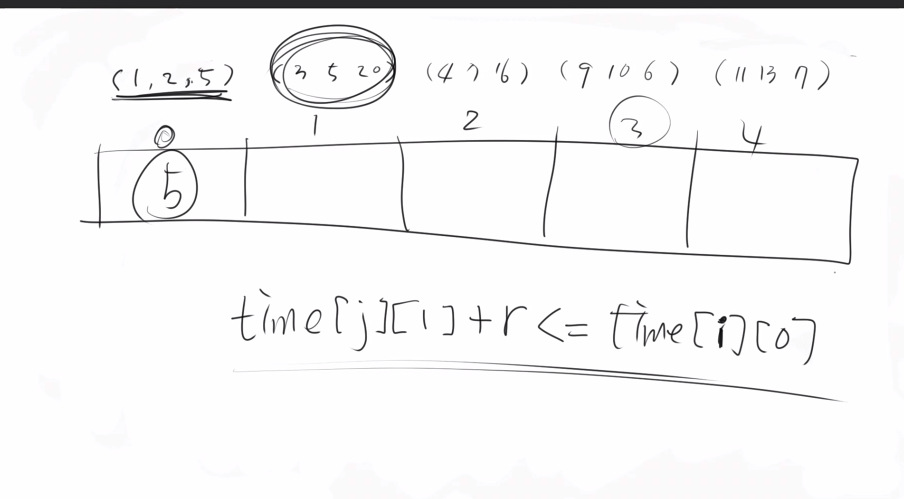 (1, 2, 5) (3 5 20) (4 7 16) (9 10 6) (11 13 7)
0 1 2 3 4
5
time[j][1]+r <= time[i][0]